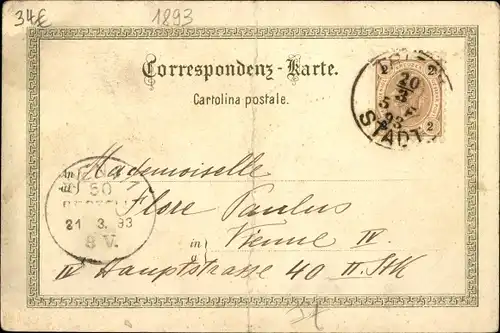 34€ 1893
Correspondenz-Karte.
Cartolina postale.
20
3
5
93
STADT
2 2
50
21 3. 93
8 V.
Mademoiselle
Flore Paulus
in Vienne IV.
IV Hauptstrasse 40 II. Stk